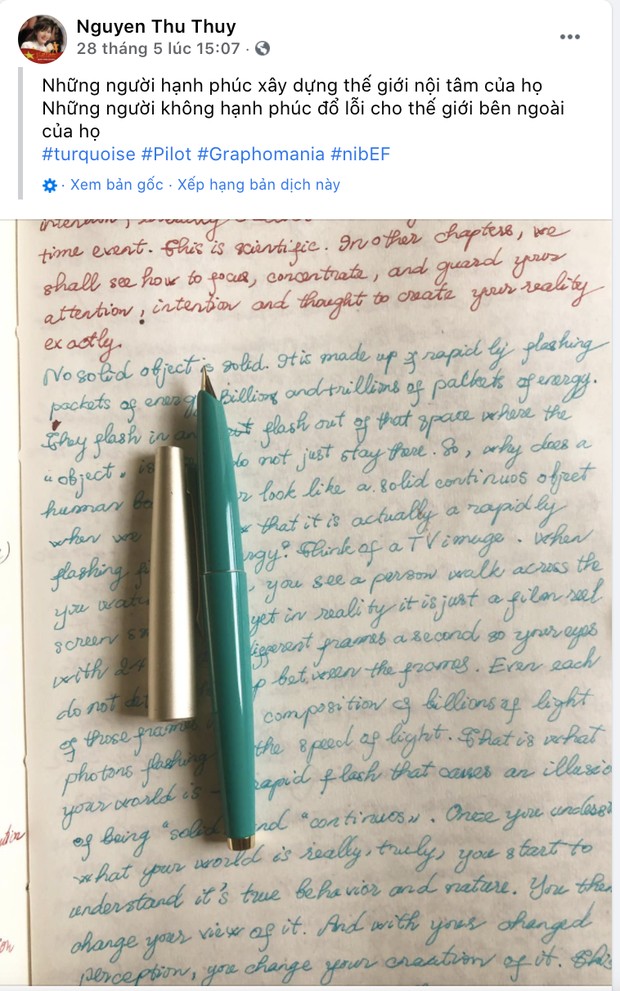 Nguyen Thu Thuy
28 tháng 5 lúc 15:07 ·
Những người hạnh phúc xây dựng thế giới nội tâm của họ
Những người không hạnh phúc đổ lỗi cho thế giới bên ngoài
của họ
#turquoise #Pilot #Graphomania #nibEF
· Xem bản gốc · Xếp hạng bản dịch này
time event. This is scientific. In other chapters, we
shall see how to focus, concentrate, and guard your
attention, intention and thought to create your reality
exactly.
No solid object is solid. It is made up of rapidly flashing
packets of energy. Billions and trillions of packets of energy.
They flash in and flash out of that space where the
"object" is do not just stay there. So, why does a
human look like a solid continuos object
when we that it is actually a rapidly
flashing Think of a TV image. When
you you see a person walk across the
screen yet in reality it is just a film reel
with 24 different frames a second so your eyes
do not between the frames. Even each
of those frames composition of billions of light
photons flashing the speed of light. That is what
your world is - rapid flash that causes an
of being "solid" and "continuos". Once you
what your world is really, truly, you start to
understand it's true behavior and nature. You then
change your view of it. And with your changed
perception, you change your creation of it. This